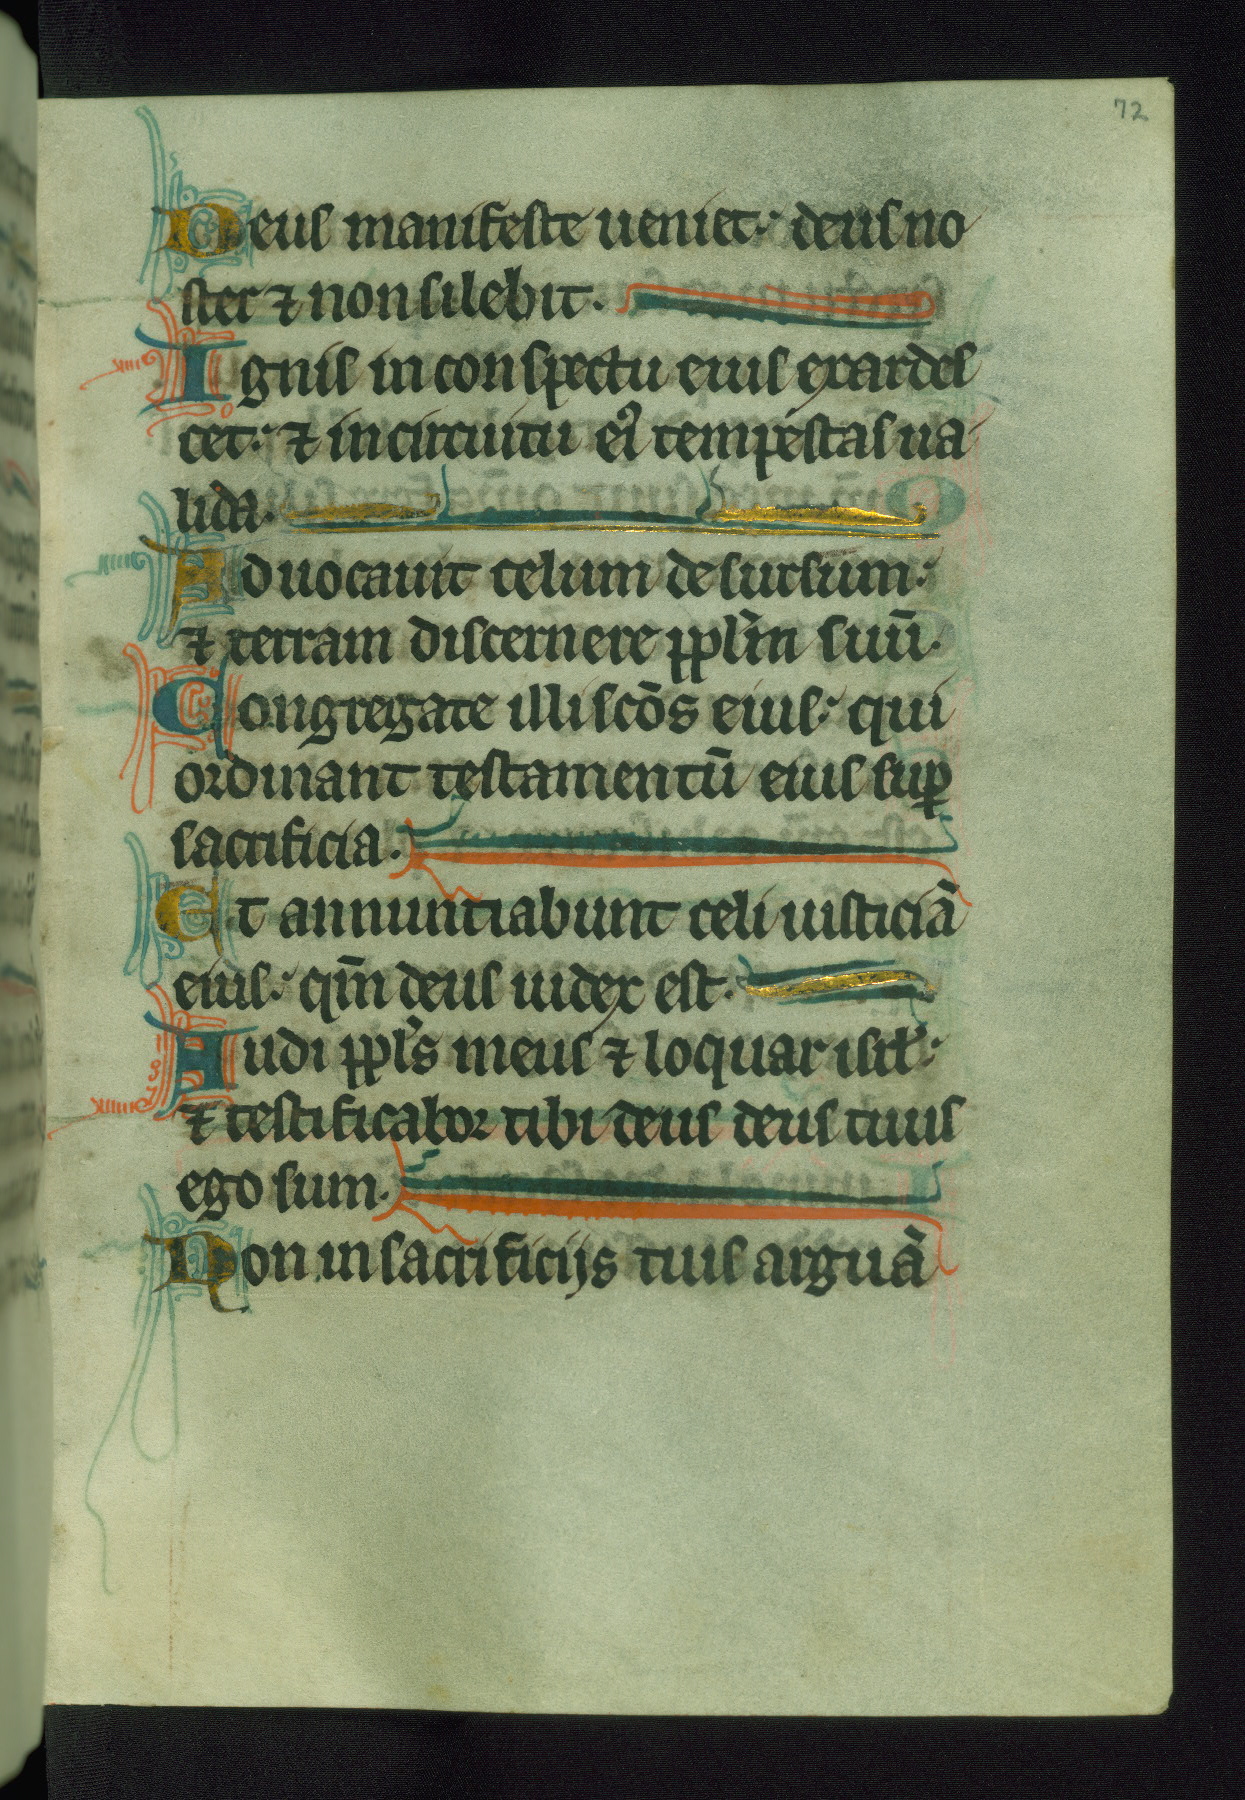 72
Deus manifeste ueniet: deus no
ster ⁊ non silebit.
Ignis in conspectu eius exardes
cet: ⁊ in circuitu ei᷒ tempestas ua
lida.
Aduocauit celum desursum:
⁊ terram discernere pplm̄ suū.
Congregate illi scōs eius: qui
ordinant testamentū eius suꝑ
sacrificia.
Et annuntiabunt celi iusticiā
eius: qm̄ deus iudex est.
Audi ppl̄s meus ⁊ loquar isrl̄:
⁊ testificabor tibi deus deus tuus
ego sum.
Non in sacrificijs tuis arguā